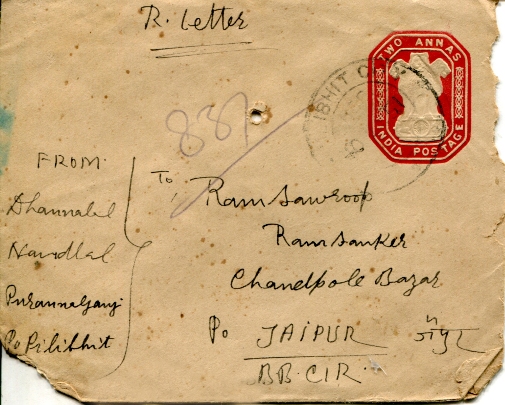 R. Letter
TWO ANNAS
INDIA POSTAGE
837
FROM
Dhannalal
Nandlal
Purannaganj
Po Pilibhit
To
Ramsawroop
Ramsanker
Chandpole Bazar
Po JAIPUR जैपुर
BB. CIR.